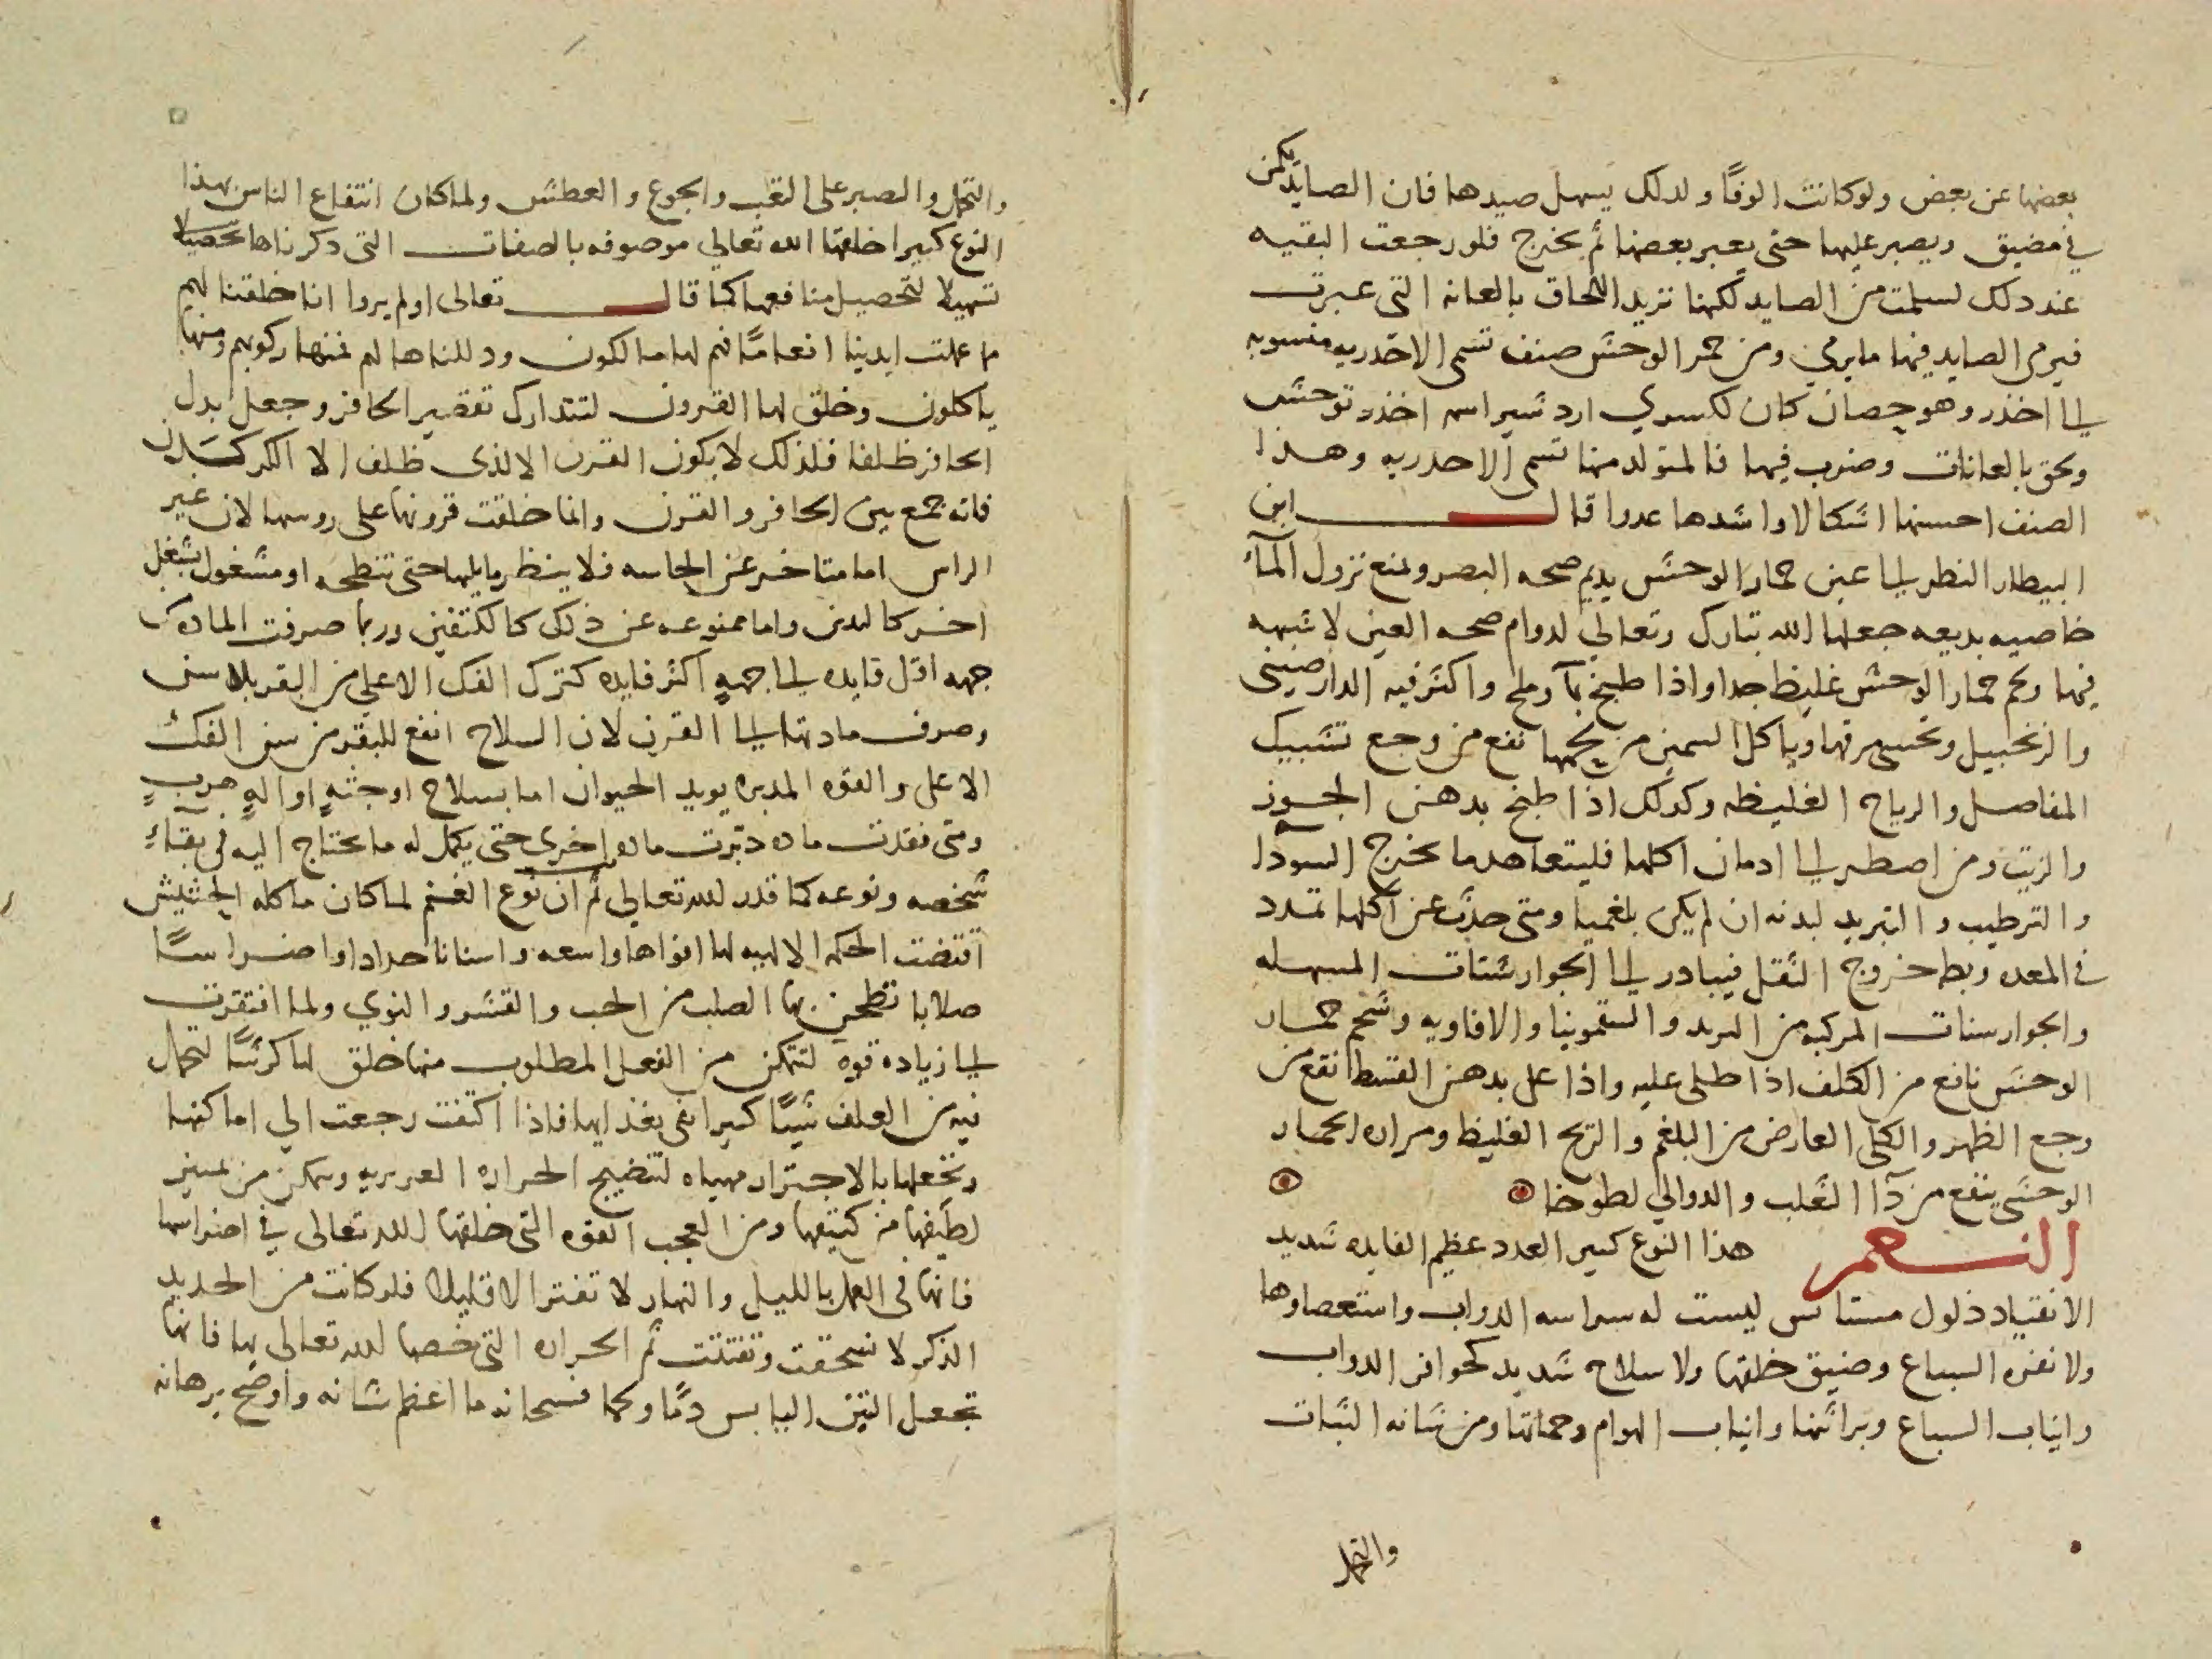 بعضها عن بعض ولو كانت الوفًا ولدلك يسهل صيدها فان الصايد يكمن
في مضيق ويصبر عليها حتى يعبر بعضها ثم يخرج فلو رجعت البقيه
عند دلك لسلمت من الصايد لكنها تريد اللحاق بالعانه التى عبرت
فيرمى الصايد فيها مايرمي ومن حمر الوحش صنف تسمى الاخدريه منسوبه
الى اخدر وهو حصان كان لكسري اردشير اسمه اخذر توحش
ولحق بالعانات وضرب فيها فالمتولد منها تسمى الاحدريه وهذا
الصنف احسنها اشكالا واشدها عدوا قال ابن
البيطار النظر الى عين حمار الوحش يديم صحه البصر ويمنع نزول المآء
خاصيه بديعه جعلها الله تبارك وتعالى لدوام صحه العين لا شبهه
فيها ولحم حمار الوحش غليظ جدا واذا طبخ بمآ وملح واكثر فيه الدارصينى
والزنجبيل وتحسى مرقها وياكل السمين من لحمها نفع من وجع تشبيك
المفاصل والرياح الغليظه وكدلك اذا طبخ بدهن الجوز
والزيت ومن اصطر الى ادمان اكلها فليتعاهد ما يخرج السودا
والترطيب والتبريد لبدنه ان لم يكن بلغميا ومتى حدث عن اكلها تمدد
في المعده وبطء خروج الثقل فيبادر الى الجوارشنات المسهله
والجوارسنات المركبه من التربد والسقمونيا والافاويه وشحم حمار
الوحش نافع من الكلف اذا طلى عليه واذا على بدهن القسط نفع من
وجع الظهر والكلى العارض من البلغم والريح الغليظ ومراره الحمار
الوحشى ينفع من دآ الثعلب والدوالي لطوخا
النعم هذا النوع كبير العدد عظيم الفايده شديد
الانقياد ذلول مستانس ليست له سراسه الدواب واستعصاوها
ولا نفره السباع وضيق خلقها ولا سلاح شديد كحوافر الدواب
وانياب السباع وبراثنها وانياب الهوام وحماتها ومن شانه الثبات
والتحمل
والتحمل والصبر على التعب والجوع والعطش ولما كان انتفاع الناس بهذا
النوع كبيرا خلقها الله تعالى موصوفه بالصفات التى دكرناها تحصيلا
تسهيلا لتحصيل منافعها كما قال تعالى اولم يروا انا خلقنا لهم
مما عملت ايدينا انعامًا فهم لها مالكون ودللناها لهم فمنها ركوبهم ومنها
ياكلون وخلق لها القرون لتتدارك تقصير الحافر وجعل بدل
الحافر ظلفا فلذلك لا يكون القرن الا لذى ظلف الا الكركسدن
فانه جمع بين الحافر والقرن وانما خلقت قرونها على روسها لان غير
الراس اما متاخر عن الحاسه فلا ينظر ما يليها حتى تنطحه او مشغول بشغل
اخر كاليدين واما ممنوعه عن ذلك كالكتفين وربما صرفت الماده من
جهه اقل فايده الى جهةٍ اكثر فايده كترك الفك الاعلى من البقر بلا سن
وصرف مادتها الى القرن لان السلاح انفع للبقر من سن الفك
الاعلى والقوه المدبره يويد الحيوان اما بسلاح او جثةٍ او الهٍ هربٍ
ومتى فقدت ماده دبّرت ماده اخرى حتى يكمل له ما يحتاج اليه في بقاءِ
شخصه ونوعه كما قدر الله تعالى ثم ان نوع الغنم لما كان ماكله الحشيش
اقتضت الحكمه الالهيه لها افواها واسعه واسنانا حدادا واضراسًا
صلابا تطحن بها الصلب من الحب والقشر والنوي ولما افتقرت
الى زياده قوه لتتمكن من الفعل المطلوب منها خلق لها كرشًا لتحمل
فيه من العلف شيئًا كبيرا يفى بغذايها فاذا اكتفت رجعت الى اماكنها
وتجعلها بالاجترار مهياه لتنضيج الحراره الغريزيه ويتمكن من تمييز
لطيفها من كثيفها ومن العجب القوه التى خلقها الله تعالى في اضراسها
فانها فى العمل بالليل والنهار لا تفتر الا قليلا فلو كانت من الحديد
الذكر لا نسحقت وتفتتت ثم الحراره التى خصها الله تعالى بها فانها
تجعل التبن اليابس دمًا ولحما فسبحانه ما اعظم شانه واوضح برهانه